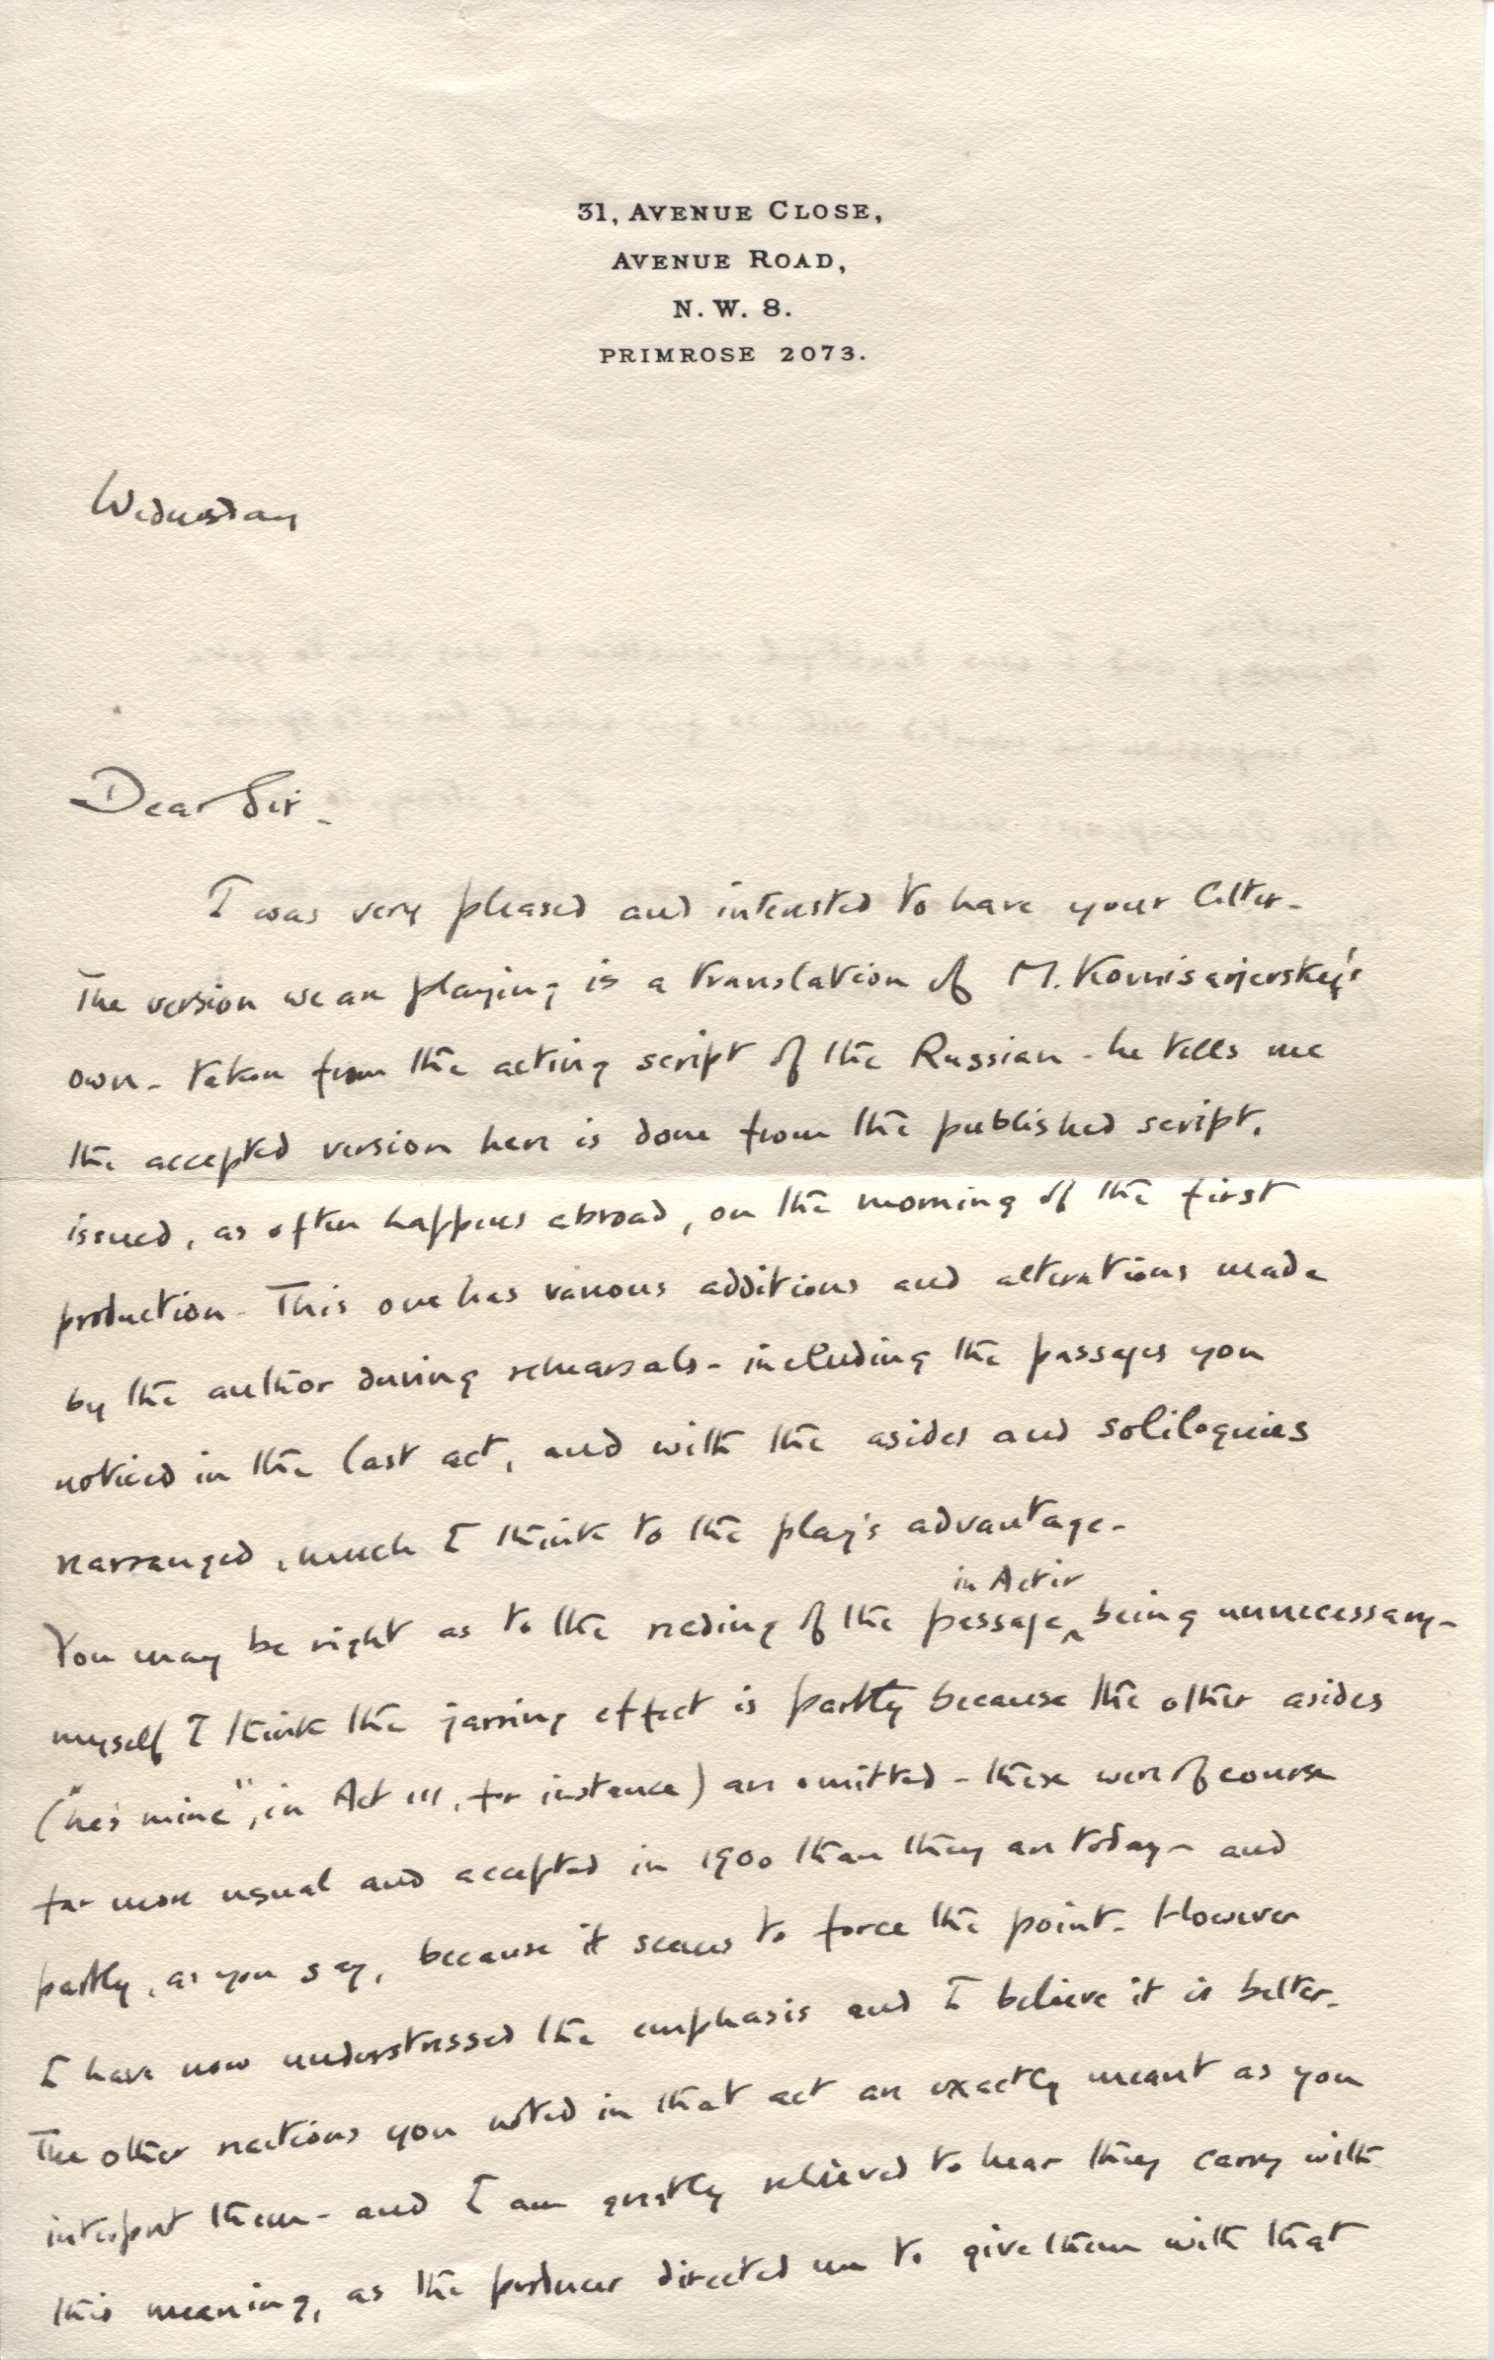 31, AVENUE CLOSE,
AVENUE ROAD,
N. W. 8.
PRIMROSE 2073.
Wednesday
Dear Sir -
I was very pleased and interested to have your letter -
The version we are playing is a translation of M. Komisarjevsky's
own - taken from the acting script of the Russian - he tells me
the accepted version here is done from the published script,
issued, as often happens abroad, on the morning of the first
production - This one has various additions and alterations made
by the author during rehearsals - including the passages you
noticed in the last act, and with the asides and soliloquies
rearranged, much I think to the play's advantage -
in Act iv
You may be right as to the reading of the passage ^ being unnecessary -
myself I think the jarring effect is partly because the other asides
("he's mine", in Act III, for instance) are omitted - these were of course
far more usual and accepted in 1900 than they are today - and
partly, as you say, because it seems to force the point - However
I have now understressed the emphasis and I believe it is better -
The other reactions you noted in that act are exactly meant as you
interpret them - and I am greatly relieved to hear they carry with
this meaning, as the producer directed me to give them with that